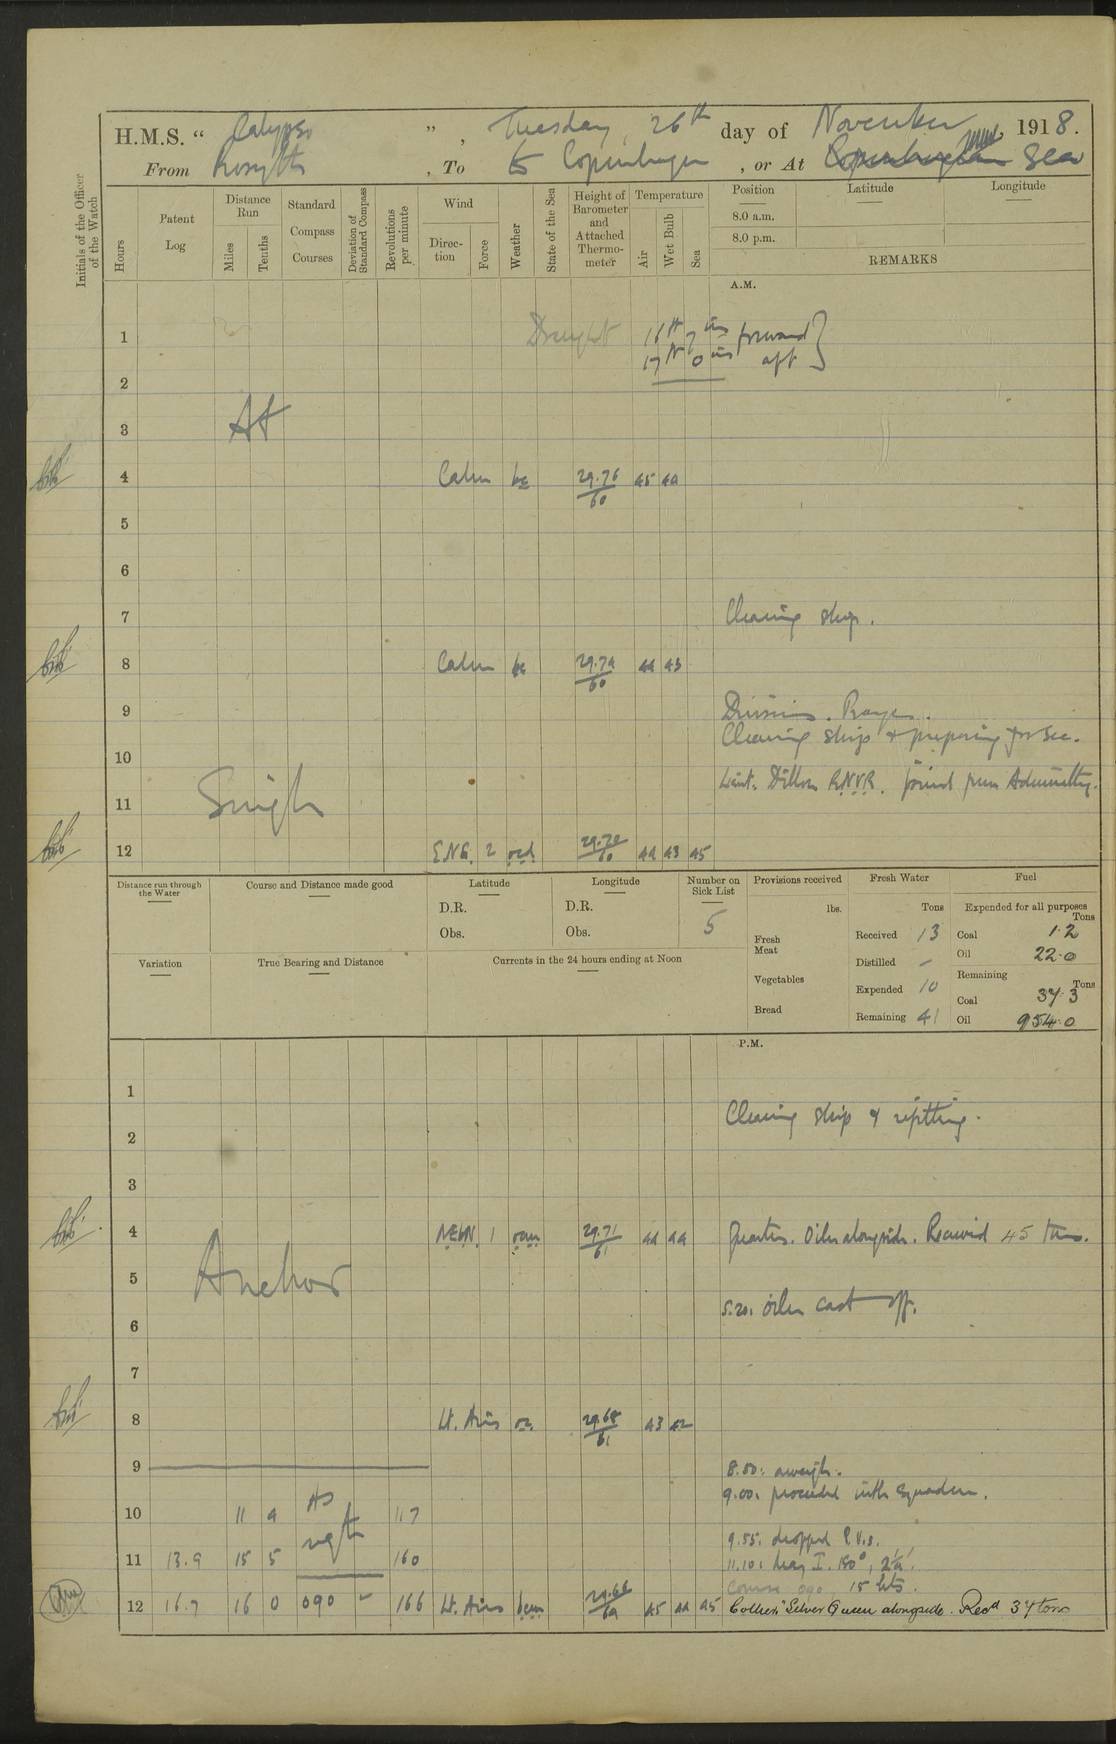 H.M.S. “ Calypso ” , Tuesday, 26th day of November 1918.
From Rosyth , To to Copenhagen , or At Sea
Initials of the Officer of the Watch
Hours
Patent Log
Distance Run
Miles
Tenths
Standard Compass Courses
Deviation of Standard Compass
Revolutions per minute
Wind
Direc-tion
Force
Weather
State of the Sea
Height of Barometer and Attached Thermo-meter
Temperature
Air
Wet Bulb
Sea
Position
Latitude
Longitude
8.0 a.m.
8.0 p.m.
REMARKS
A.M.
1 Draught 16ft 7 ins forward
17ft 0 ins aft
2
At
3
4 Calm bc 29.76/60 45 44
5
6
7 Cleaning ship.
8 Calm bc 29.74/60 44 43
9 Divisions. Prayers.
Cleaning ship & preparing for sea.
10
Lieut. Dillon R.N.V.R. joined from Admiralty.
11
12 E.N.E. 2 29.70/60 44 43 45
Distance run through the Water
Course and Distance made good
Latitude
D.R.
Obs.
Longitude
D.R.
Obs.
Number on Sick List
5
Provisions received
lbs.
Fresh Meat
Vegetables
Bread
Fresh Water
Tons
Received 13
Distilled –
Expended 10
Remaining 41
Fuel
Expended for all purposes
Tons
Coal 1.2
Oil 22.0
Remaining
Tons
Coal 37.3
Oil 954.0
Variation
True Bearing and Distance
Currents in the 24 hours ending at Noon
P.M.
1
Cleaning ship & refitting.
2
3
4 NEbN. 1 29.71/61 44 44 Quarters. Oiler alongside. Received 45 tons.
Anchor
5
5.20. oiler cast off.
6
7
8 Lt. Airs 29.68/61 43 42
9 8.50: aweigh.
9.00. proceeded with Squadron.
As
10 11 4 117
req
9.55. dropped P.V.s.
11 13.9 15 5 160
11.10: May I. 180°, 2¼'.
Course 090, 15 kts.
12 16.7 16 0 090 – 166 Lt. Airs 29.66/64 45 44 45 Collier "Silver Queen alongside. Recd 37 tons